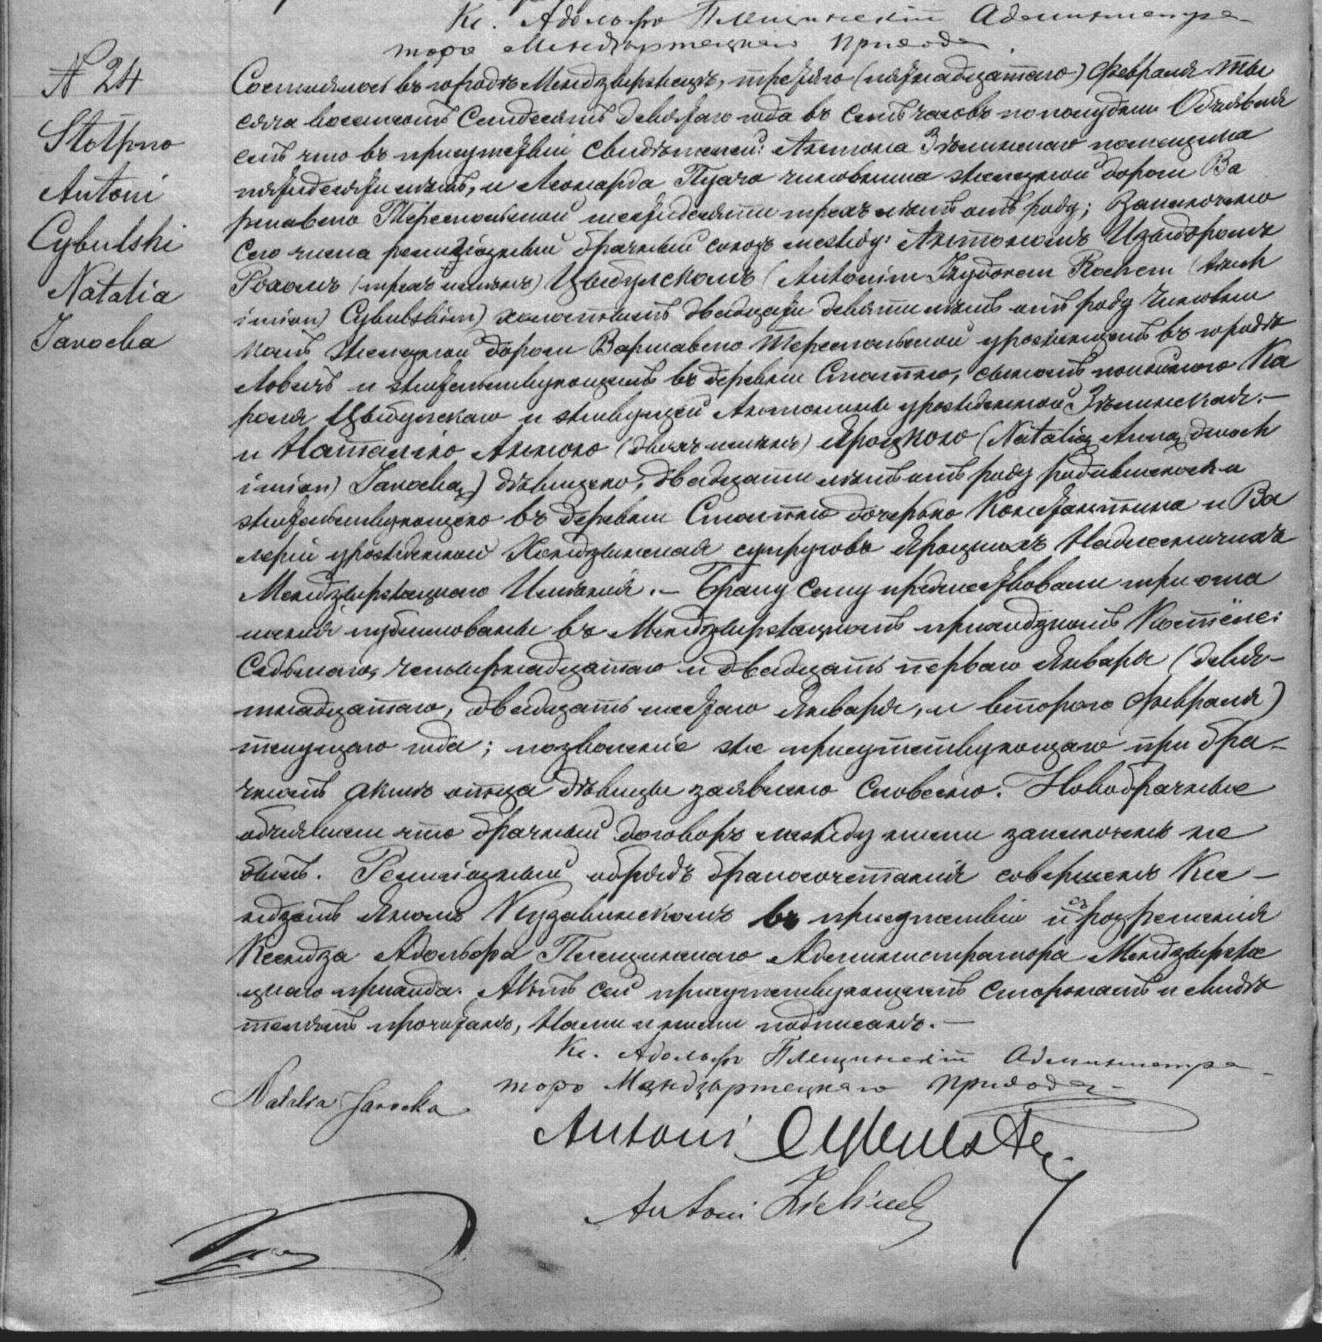 Кс. Адольфъ Плещинскій Администра-
торъ Мендзыржецкаго Прихода.
№ 24
Stołpno
Antoni
Cybulski
Natalia
Jarocka
Состоялось въ городѣ Мендзыржецѣ, третьяго (пятнадцатаго) Февраля ты
сяча восемсотъ семдесятъ девятаго года въ семь часовъ по полудни. Объявля
емъ что въ присутствіи свидѣтелей: Антона Зѣлинскаго помещика
пятидесяти лѣтъ, и Леонарда чиновника желѣзной дороги Ва
ршавско Тереспольской шестидесяти трехъ лѣтъ отъ роду; заключено
сего числа религіозный брачный союзъ между: Антонимъ Изыдоромъ
Рохомъ (трехъ именъ) Цыбульскомъ (Antonim Izydorem Rochem (trzech
imion) Cybulskim) холостымъ двадцати девяти лѣтъ отъ роду чиновни
комъ желѣзной дороги Варшавско Тереспольской урожденнымъ въ городѣ
Ловичъ и жительствующимъ въ деревни Столпно, сыномъ покойнаго Ка
роля Цыбульскаго и живущей Антонины урожденной Зѣлинской.—
и Наталію Анною (двухъ именъ) Яроцкою (Natalią Anną dwoch
imion) Jarocką) дѣвицею, двадцати лѣтъ отъ роду родившеюся и
жительствующею въ деревни Столпно дочерью Константина и Ва
леріи урожденной супруговъ Яроцкихъ
Мендзыржецкаго Имѣнія.— Браку сему предшествовали три огла
шенія публикованы въ Мендзыржецкомъ приходскомъ Костёле:
Седьмаго, четырнадцатаго и двадцать перваго Января (девя-
тнадцатаго, двадцать шестаго Января, и втораго Февраля)
текущаго года; позволеніе же присутствующаго при бра-
чномъ актѣ отца дѣвицы заявлено словесно. Новобрачные
объявили что брачный договоръ между ними заключенъ не
былъ. Религіозный обрядъ бракосочетанія совершенъ Ксе-
ндзомъ Яномъ въ присутствіи и съ разрешенія
Ксендза Адольфа Плещинскаго Администратора Мендзырже
цкаго прихода. Актъ сей присутствующимъ сторонамъ и свидѣ
телямъ прочитанъ, Нами и ними подписанъ.—
Кс. Адольфъ Плещинскій Администра-
торъ Мендзыржецкаго Прихода
Natalia Jarocka
Antoni Cybulski
Antoni Zieliński